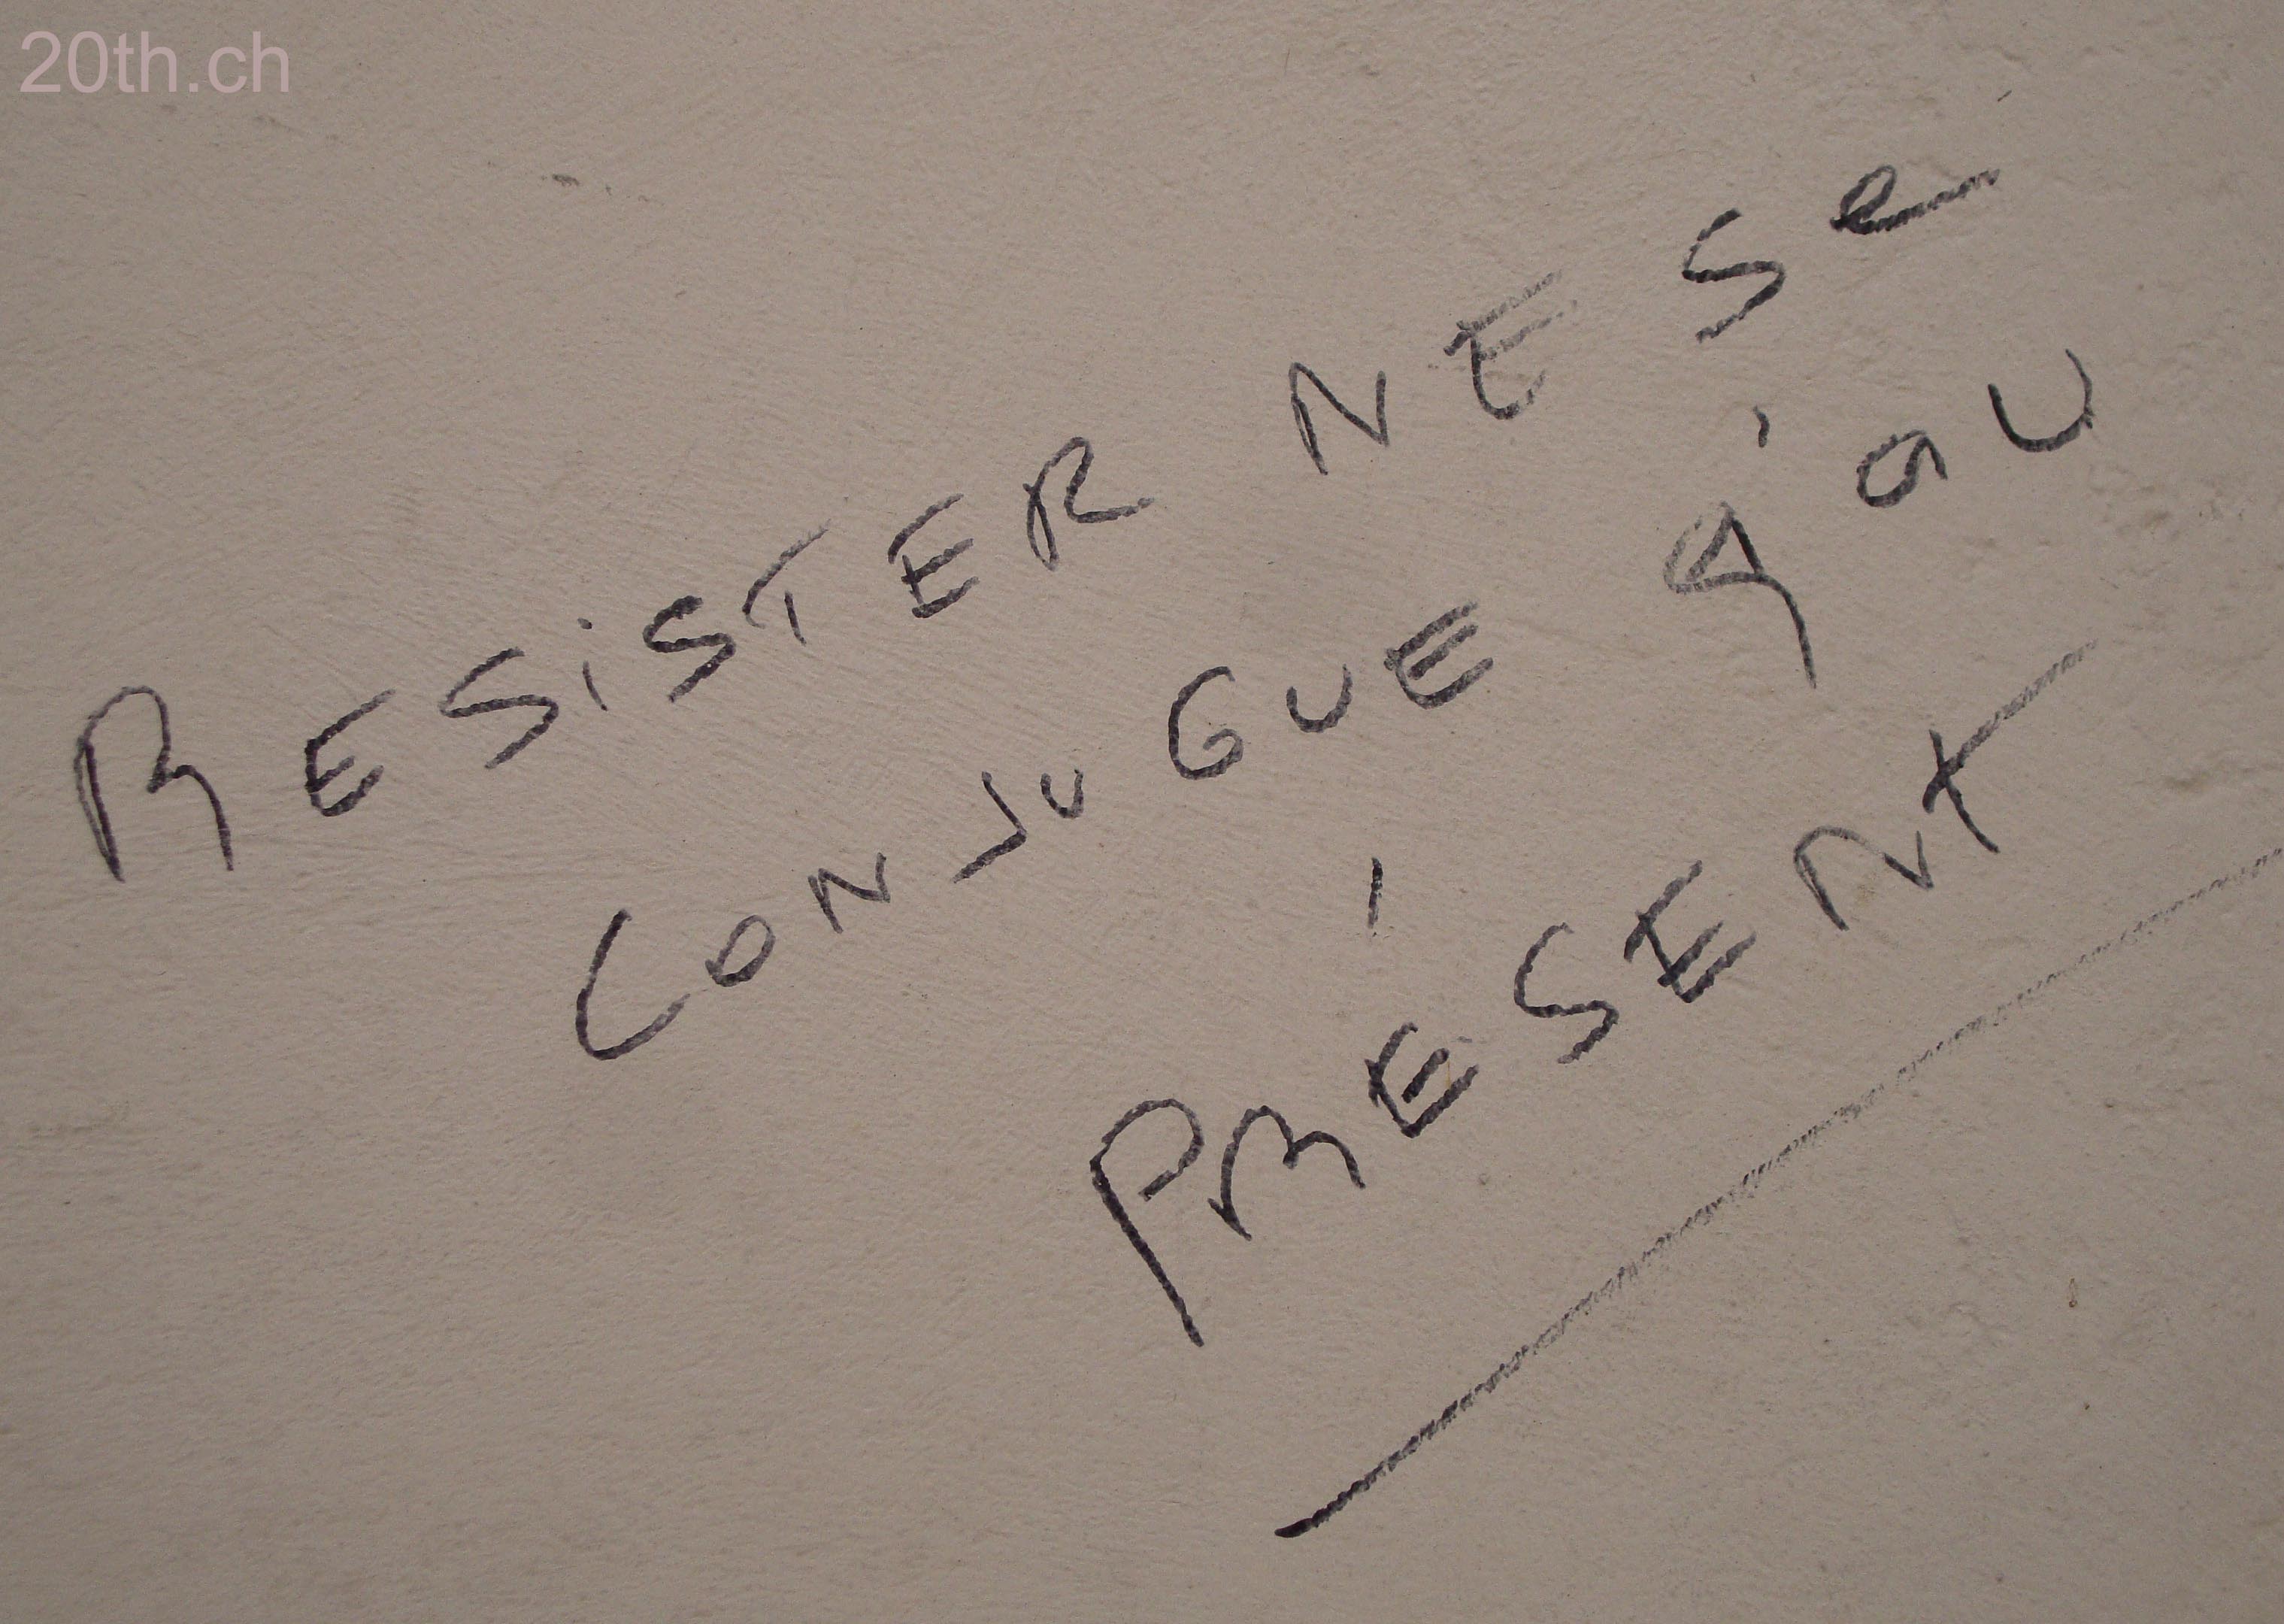 20th.ch
RESiSTER NE Se
CONJUGUE q'au
PRÉSENT